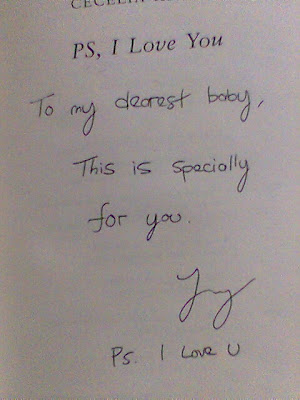 CECELIA
PS, I Love You
To my dearest baby,
This is specially
for you.
Ps. I Love U